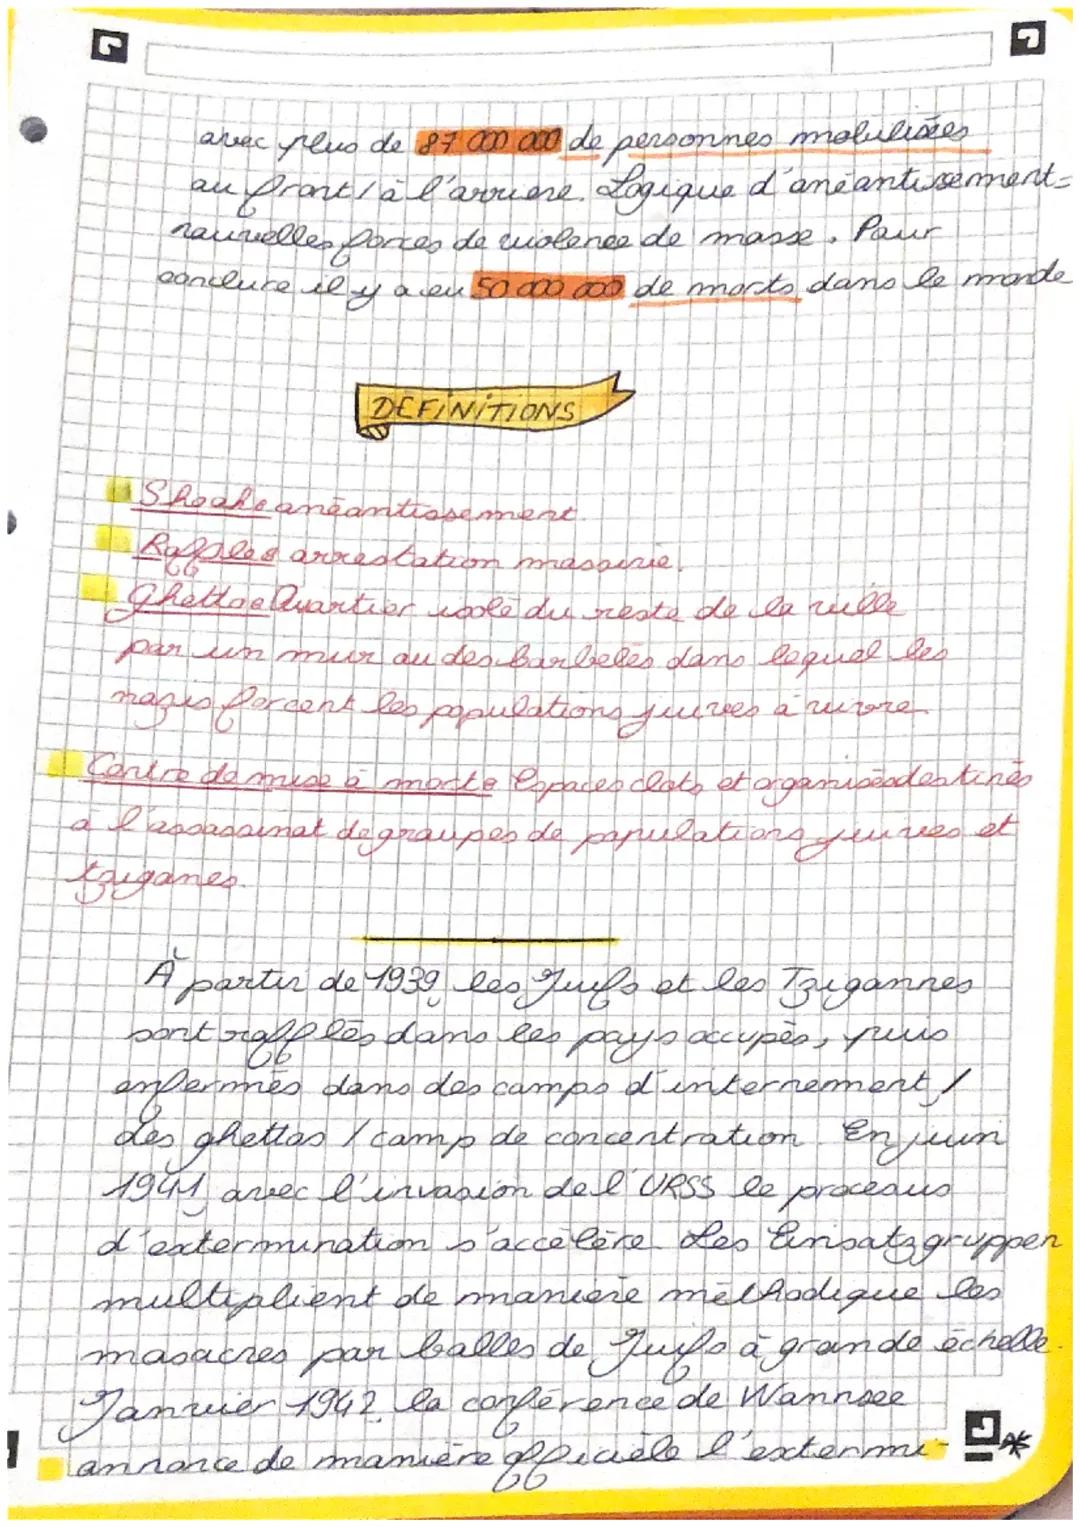 avec plus de 87 000 000 de personnes mobilisées
au front / à l'arrière. Logique d'anéantissement =
nouvelles forces de violence de masse. Pour
conclure il y a eu 50 000 000 de morts dans le monde
DÉFINITIONS
Shoah : anéantissement.
Raffles : arrestation massivie.
Ghetto : Quartier isolé du reste de la ville
par un mur ou des barbelés dans lequel les
nazis forcent les populations juives à vivre.
Centre de mise à mort : Espaces clots et organisés destinés
à l'assassinat de groupes de populations juives et
tziganes.
À partir de 1939, les Juifs et les Tzigannes
sont rafflés dans les pays occupés, puis
enfermés dans des camps d'internement /
des ghettos / camp de concentration. En juin
1941, avec l'invasion de l'URSS le procesus
d'extermination s'accélère. Les Einsatzgruppen
multiplient de manière méthodique les
masacres par balles de Juifs à grande échelle.
Janvier 1942, la conférence de Wannsee
annonce de manière officièle l'extermi-